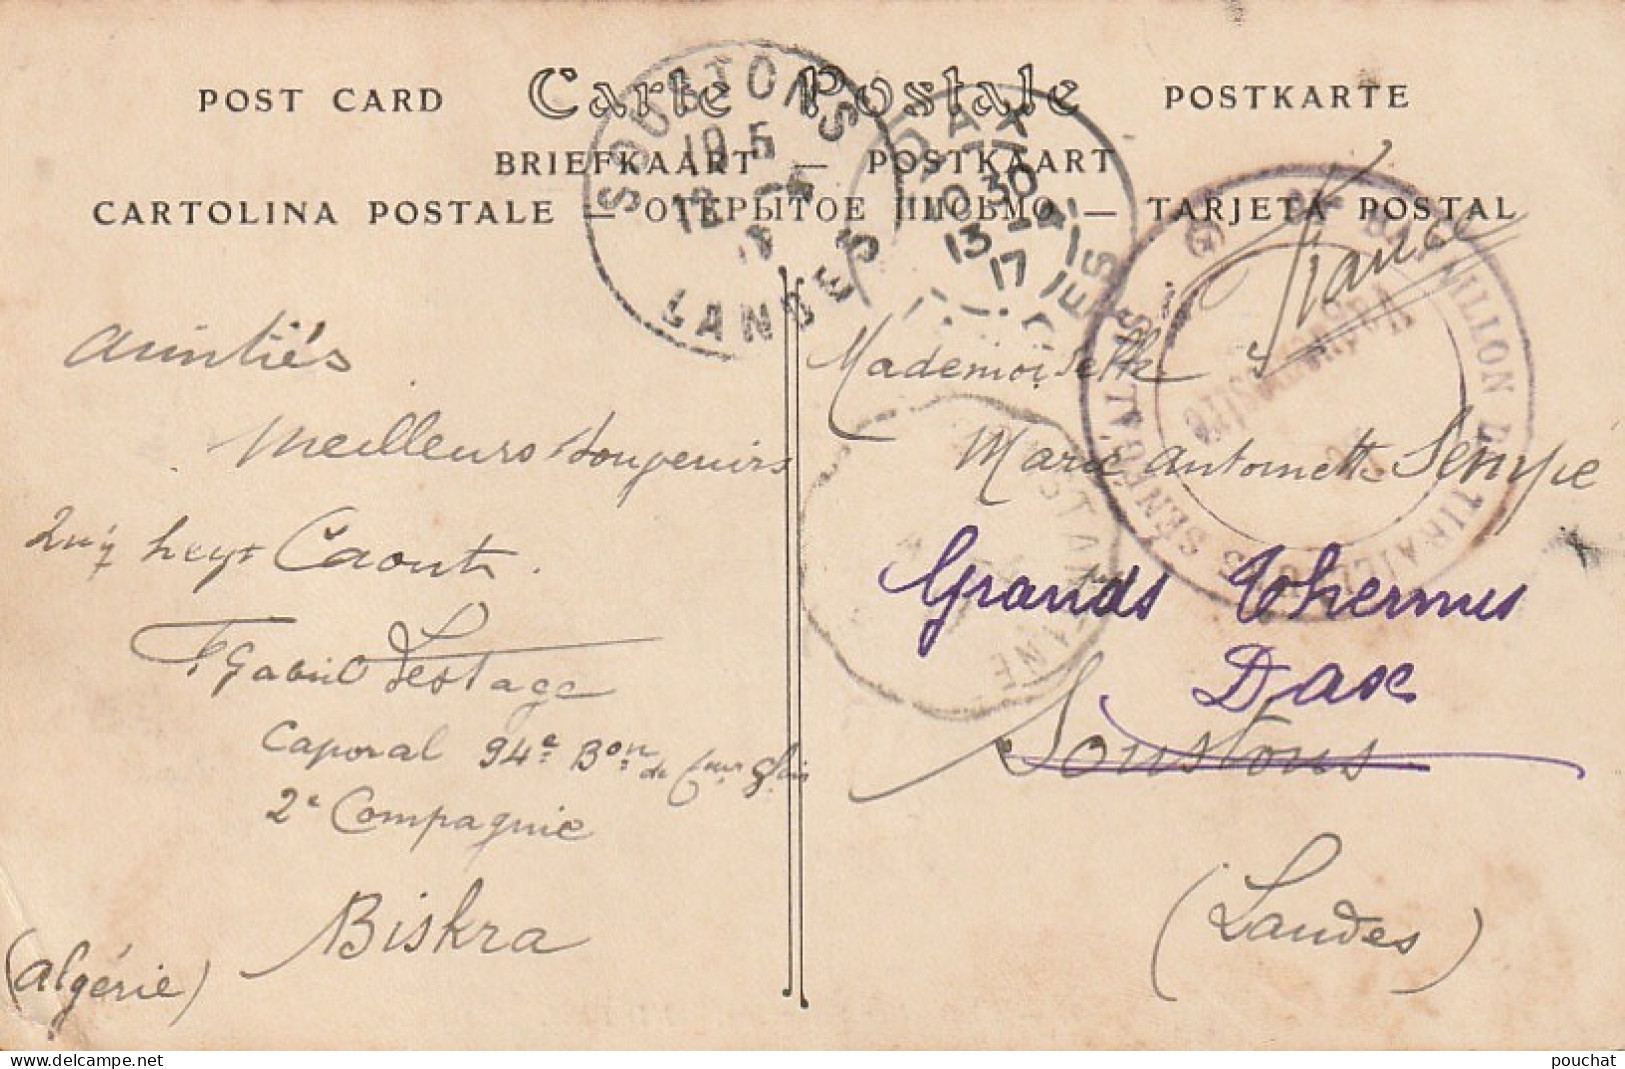 POST CARD
Carte Postale
POSTKARTE
BRIEFKAART — POSTKAART
CARTOLINA POSTALE — ОТКРЫТОЕ ПИСЬМО — TARJETA POSTAL
SOUSTONS
LANDES
DAX
10 30
13 - 4
17
France
BATAILLON DE TIRAILLEURS SÉNÉGALAIS
Vaguemestre
CONSTANTINE
amitiés
Meilleurs Souvenirs
Caout
Gabriel Lestage
Caporal 94e Bon de
2e Compagnie
Biskra
(Algérie)
Mademoiselle
Marie Antoinette Sempé
Grands Thermes
Dax
Soustons
(Landes)
pouchat